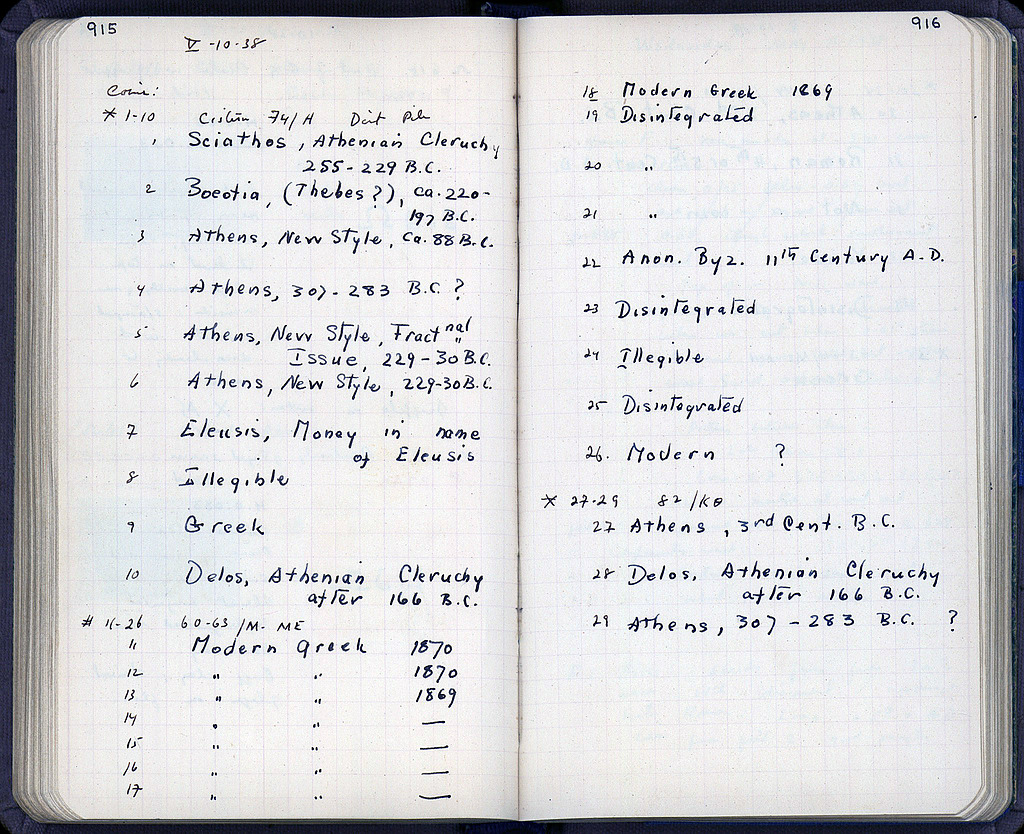 915
V-10-38
Coins:
* 1-10 Cistern 74/H Dirt Pile
1 Sciathos, Athenian Cleruchy
255-229 B.C.
2 Boeotia, (Thebes?), ca. 220-
197 B.C.
3 Athens, New Style, ca. 88 B.C.
4 Athens, 307-283 B.C. ?
5 Athens, New Style, Fract nal
Issue, 229-30 B.C.
6 Athens, New Style, 229-30 B.C.
7 Eleusis, Money in name
of Eleusis
8 Illegible
9 Greek
10 Delos, Athenian Cleruchy
after 166 B.C.
# 11-26 60-63/M-ME
11 Modern Greek 1870
12 " " 1870
13 " " 1869
14 " " —
15 " " —
16 " " —
17 " " —
916
18 Modern Greek 1869
19 Disintegrated
20 "
21 "
22 Anon. Byz. 11th Century A.D.
23 Disintegrated
24 Illegible
25 Disintegrated
26. Modern ?
* 27-29 82/KΘ
27 Athens, 3rd Cent. B.C.
28 Delos, Athenian Cleruchy
after 166 B.C.
29 Athens, 307-283 B.C. ?